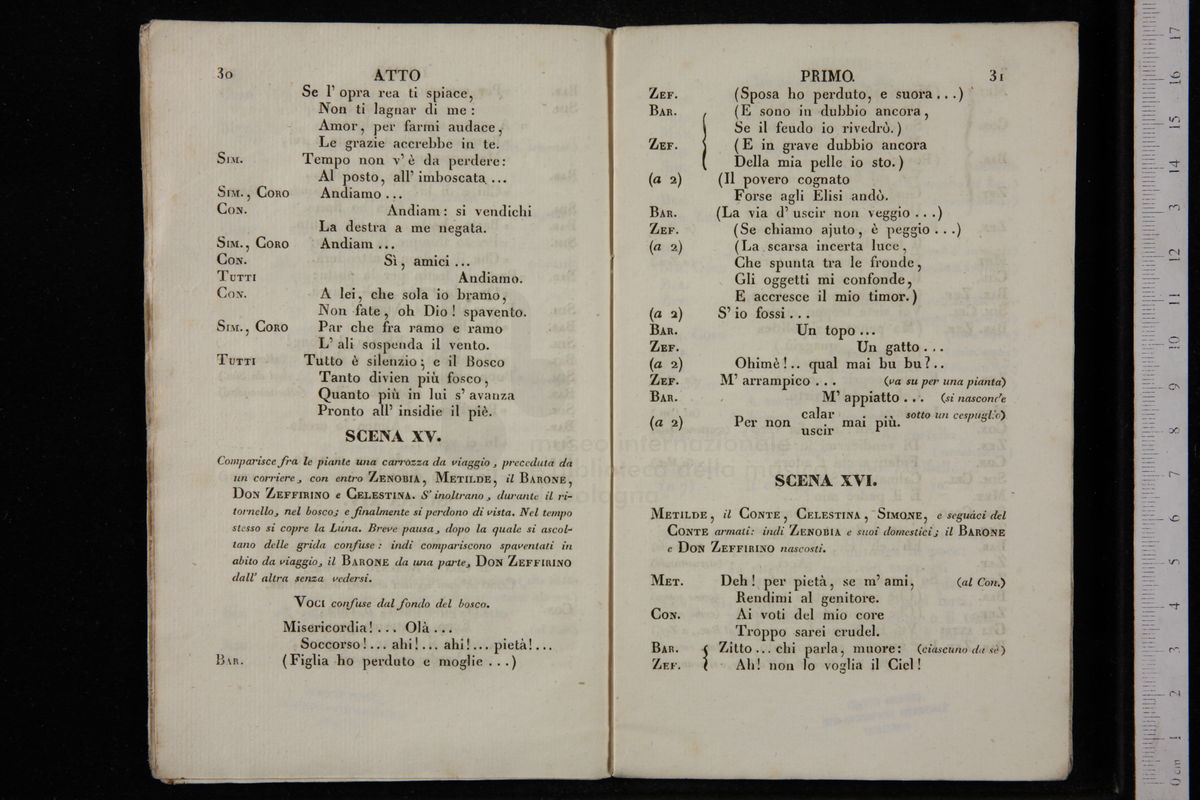 30 ATTO
Se l' opra rea ti spiace,
Non ti lagnar di me:
Amor, per farmi audace,
Le grazie accrebbe in te.
Sim. Tempo non v' è da perdere:
Al posto, all' imboscata ...
Sim., Coro Andiamo ...
Con. Andiam: si vendichi
La destra a me negata.
Sim., Coro Andiam ...
Con. Sì, amici ...
Tutti Andiamo.
Con. A lei, che sola io bramo,
Non fate, oh Dio! spavento.
Sim., Coro Par che fra ramo e ramo
L' ali sospenda il vento.
Tutti Tutto è silenzio; e il Bosco
Tanto divien più fosco,
Quanto più in lui s' avanza
Pronto all' insidie il piè.
SCENA XV.
Comparisce fra le piante una carrozza da viaggio, preceduta da
un corriere, con entro Zenobia, Metilde, il Barone,
Don Zeffirino e Celestina. S' inoltrano, durante il ri-
tornello, nel bosco; e finalmente si perdono di vista. Nel tempo
stesso si copre la Luna. Breve pausa, dopo la quale si ascol-
tano delle grida confuse: indi compariscono spaventati in
abito da viaggio, il Barone da una parte, Don Zeffirino
dall' altra senza vedersi.
Voci confuse dal fondo del bosco.
Misericordia! ... Olà ...
Soccorso! ... ahi! ... ahi! ... pietà! ...
Bar. (Figlia ho perduto e moglie ...)
PRIMO. 31
Zef. (Sposa ho perduto, e suora ...)
Bar. (E sono in dubbio ancora,
Se il feudo io rivedrò.)
Zef. (E in grave dubbio ancora
Della mia pelle io sto.)
(a 2) (Il povero cognato
Forse agli Elisi andò.
Bar. (La via d' uscir non veggio ...)
Zef. (Se chiamo ajuto, è peggio ...)
(a 2) (La scarsa incerta luce,
Che spunta tra le fronde,
Gli oggetti mi confonde,
E accresce il mio timor.)
(a 2) S' io fossi ...
Bar. Un topo ...
Zef. Un gatto ...
(a 2) Ohimè! .. qual mai bu bu? ..
Zef. M' arrampico ... (va su per una pianta)
Bar. M' appiatto ... (si nasconde
sotto un cespuglio)
(a 2) Per non calar mai più.
uscir
SCENA XVI.
Metilde, il Conte, Celestina, Simone, e seguaci del
Conte armati: indi Zenobia e suoi domestici; il Barone
e Don Zeffirino nascosti.
Met. Deh! per pietà, se m' ami, (al Con.)
Rendimi al genitore.
Con. Ai voti del mio core
Troppo sarei crudel.
Bar. Zitto ... chi parla, muore: (ciascuno da sè)
Zef. Ah! non lo voglia il Ciel!
museo internazionale
biblioteca della musica
bologna
0 cm 1 2 3 4 5 6 7 8 9 10 11 12 13 14 15 16 17